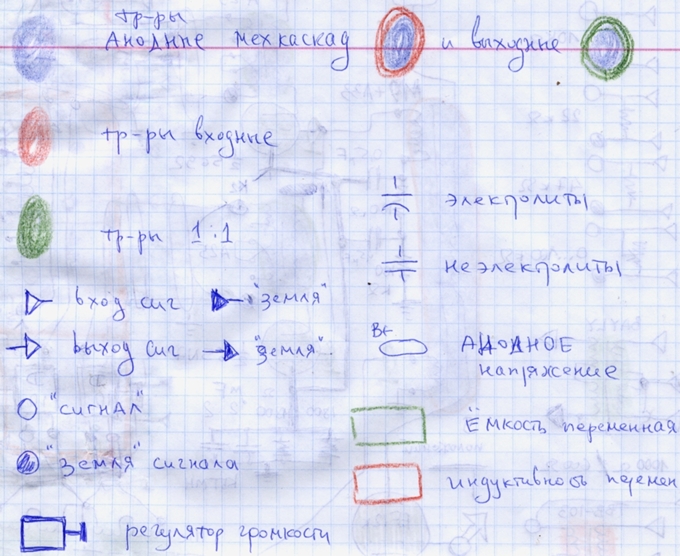 тр-ры
Анодные межкаскад и выходные
тр-ры входные
электролиты
тр-ры 1:1
не электролиты
вход сиг "земля"
выход сиг "земля".
В+
Анодное
напряжение
"сигнал"
Ёмкость переменная
"земля" сигнала
индуктивность перемен
регулятор громкости